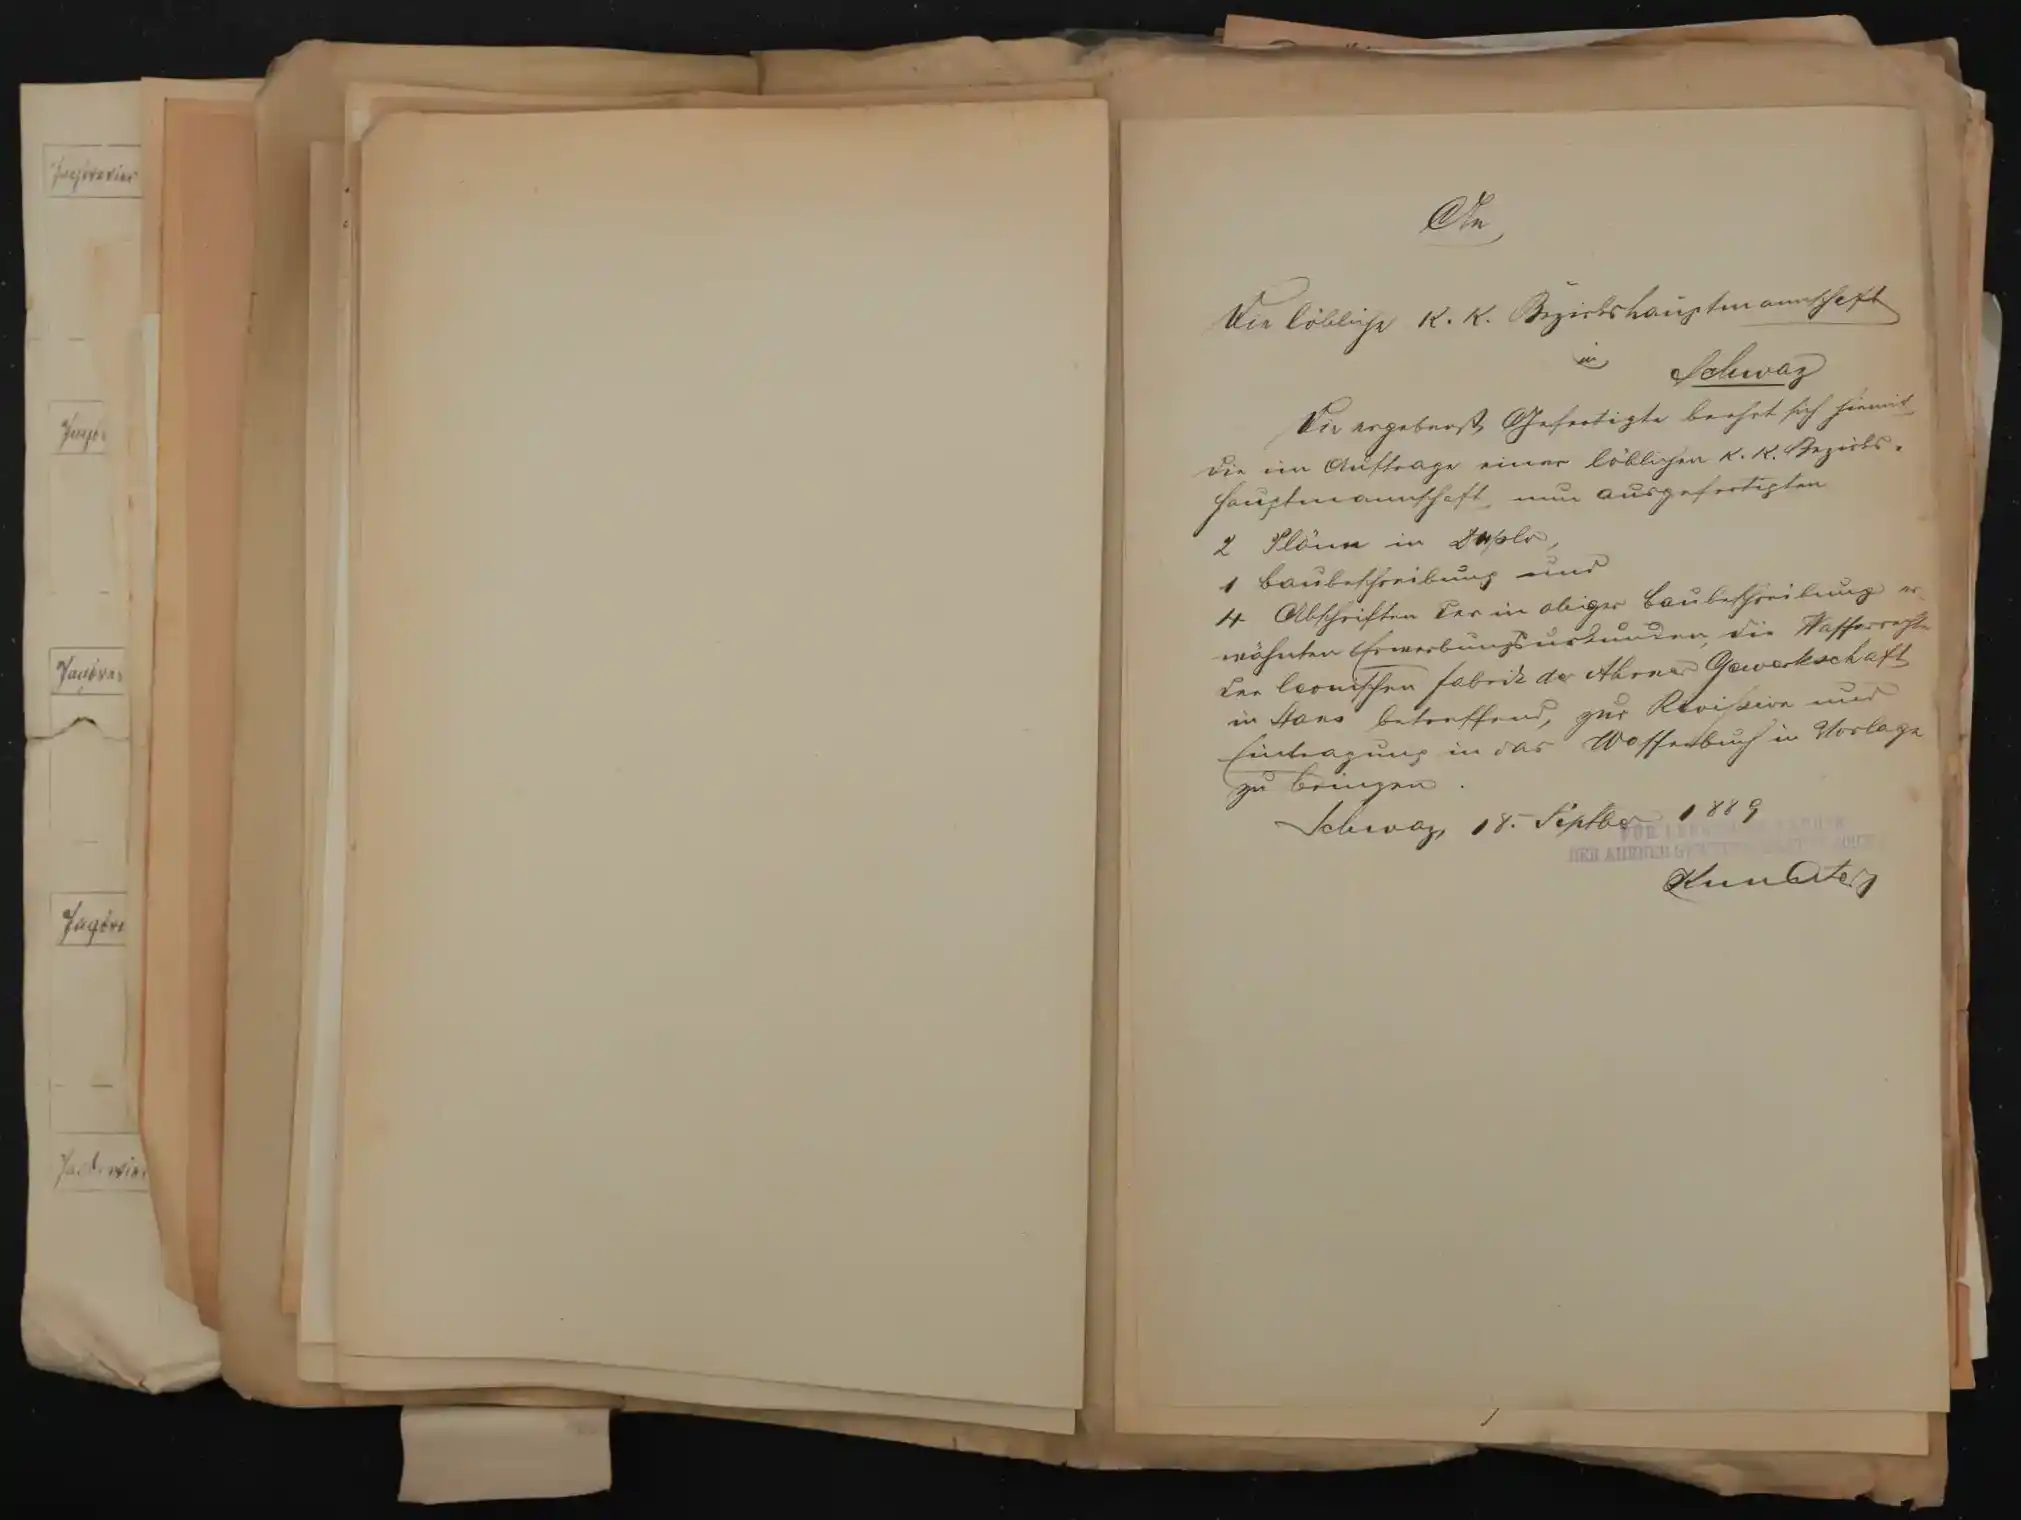 Jagdrevier
Jagdr
Jagdrev
Jagdre
Jagdrevier
An
Die löbliche K. K. Bezirkshauptmannschaft
in
Schwaz
Die ergebenst Gefertigte beehrt sich hiermit
die im Auftrage einer löblichen K. K. Bezirks-
hauptmannschaft nun ausgefertigten
2 Pläne in Duplo,
1 Baubeschreibung und
4 Abschriften der in obiger Baubeschreibung er-
wähnten Erwerbungsurkunden, die Wasserrechte
der leonischen Fabrik der Ahrner Gewerkschaft
in Stans betreffend, zur Revision und
Eintragung in das Wasserbuch in Vorlage
zu bringen.
Schwaz, 18. Septber 1889
FÜR
DER AHRNER